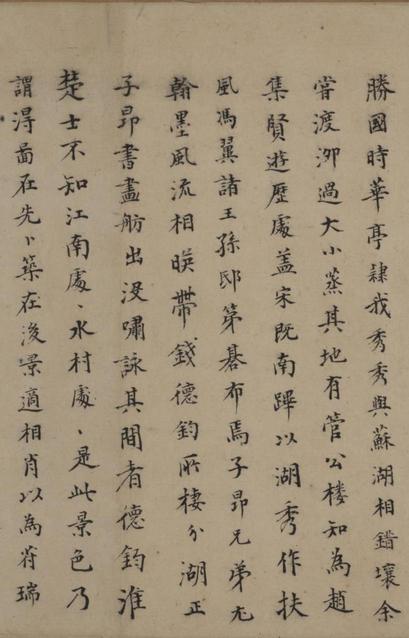 勝國時華亭隸我秀秀與蘇湖相錯壤余
嘗渡泖過大小蒸其地有管公楼知為趙
集賢遊歷處盖宋既南蹕以湖秀作扶
風馮翼諸王孫邸第碁布焉子昂兄弟尤
翰墨風流相暎帶錢德鈞所棲分湖正
子昂書畫舫出沒嘯詠其間者德鈞淮
楚士不知江南處、水村處、是此景色乃
謂得啚在先卜築在後景適相肖以為苻瑞